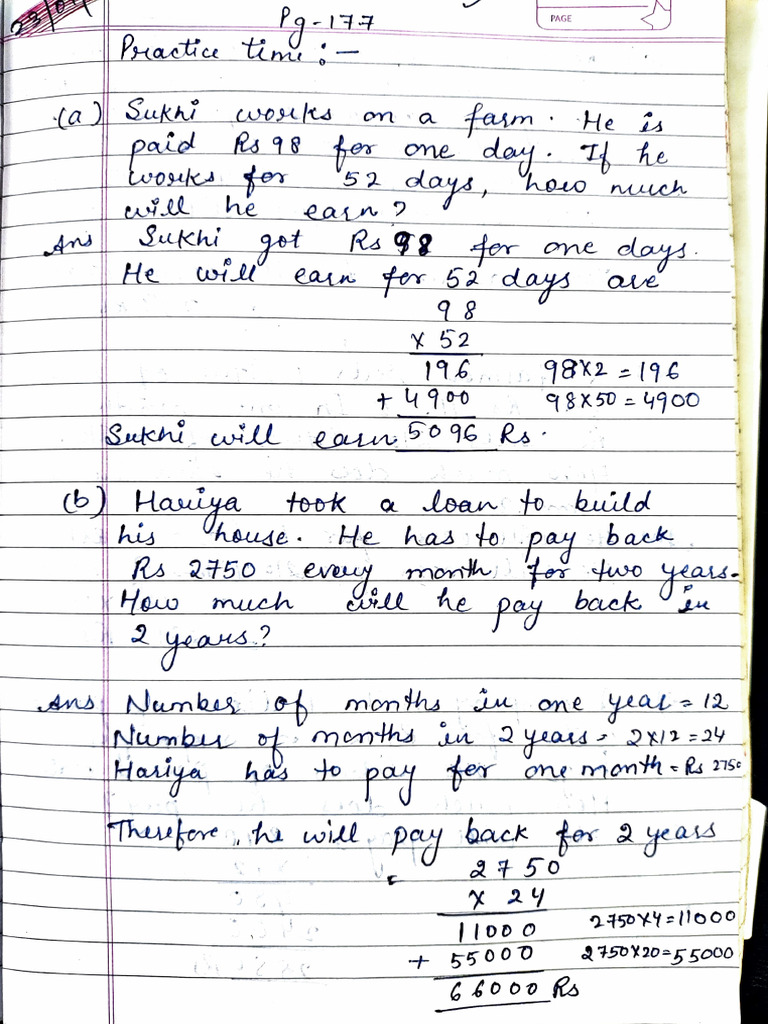 23/04
Pg-177
PAGE
Practice time :-
(a) Sukhi works on a farm. He is
paid Rs 98 for one day. If he
works for 52 days, how much
will he earn?
Ans Sukhi got Rs 98 for one days.
He will earn for 52 days are
98
x 52
196 98x2 = 196
+ 4900 98x50 = 4900
Sukhi will earn 5096 Rs.
(b) Hariya took a loan to build
his house. He has to pay back
Rs 2750 every month for two years.
How much will he pay back in
2 years?
Ans Number of months in one year = 12
Number of months in 2 years = 2x12 = 24
Hariya has to pay for one month = Rs 2750
Therefore, he will pay back for 2 years
= 2750
x 24
11000 2750x4=11000
+ 55000 2750x20=55000
66000 Rs